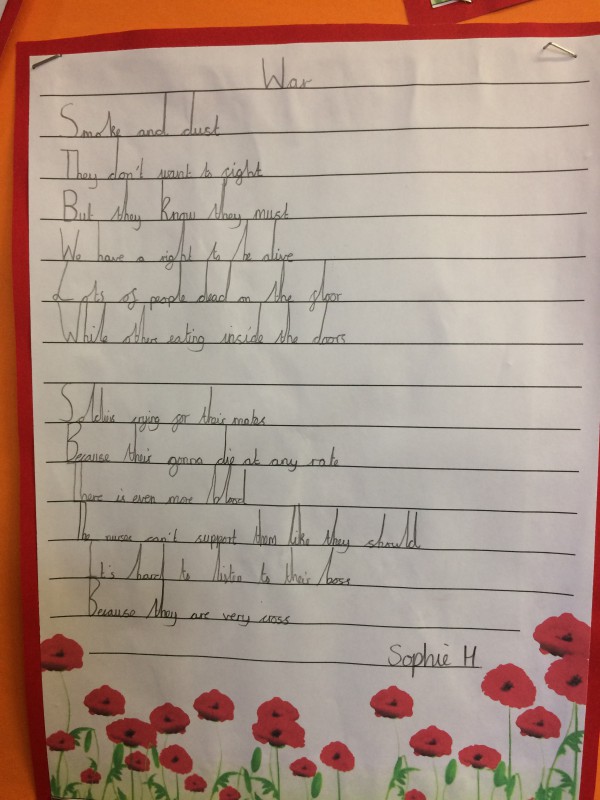 War
Smoke and dust
They don't want to fight
But they know they must
We have a right to be alive
Lots of people dead on the floor
While others eating inside the doors
Soldiers crying for their mates
Because their gonna die at any rate
There is even more blood
The nurses can't support them like they should
It's hard to listen to their boss
Because they are very cross
Sophie H